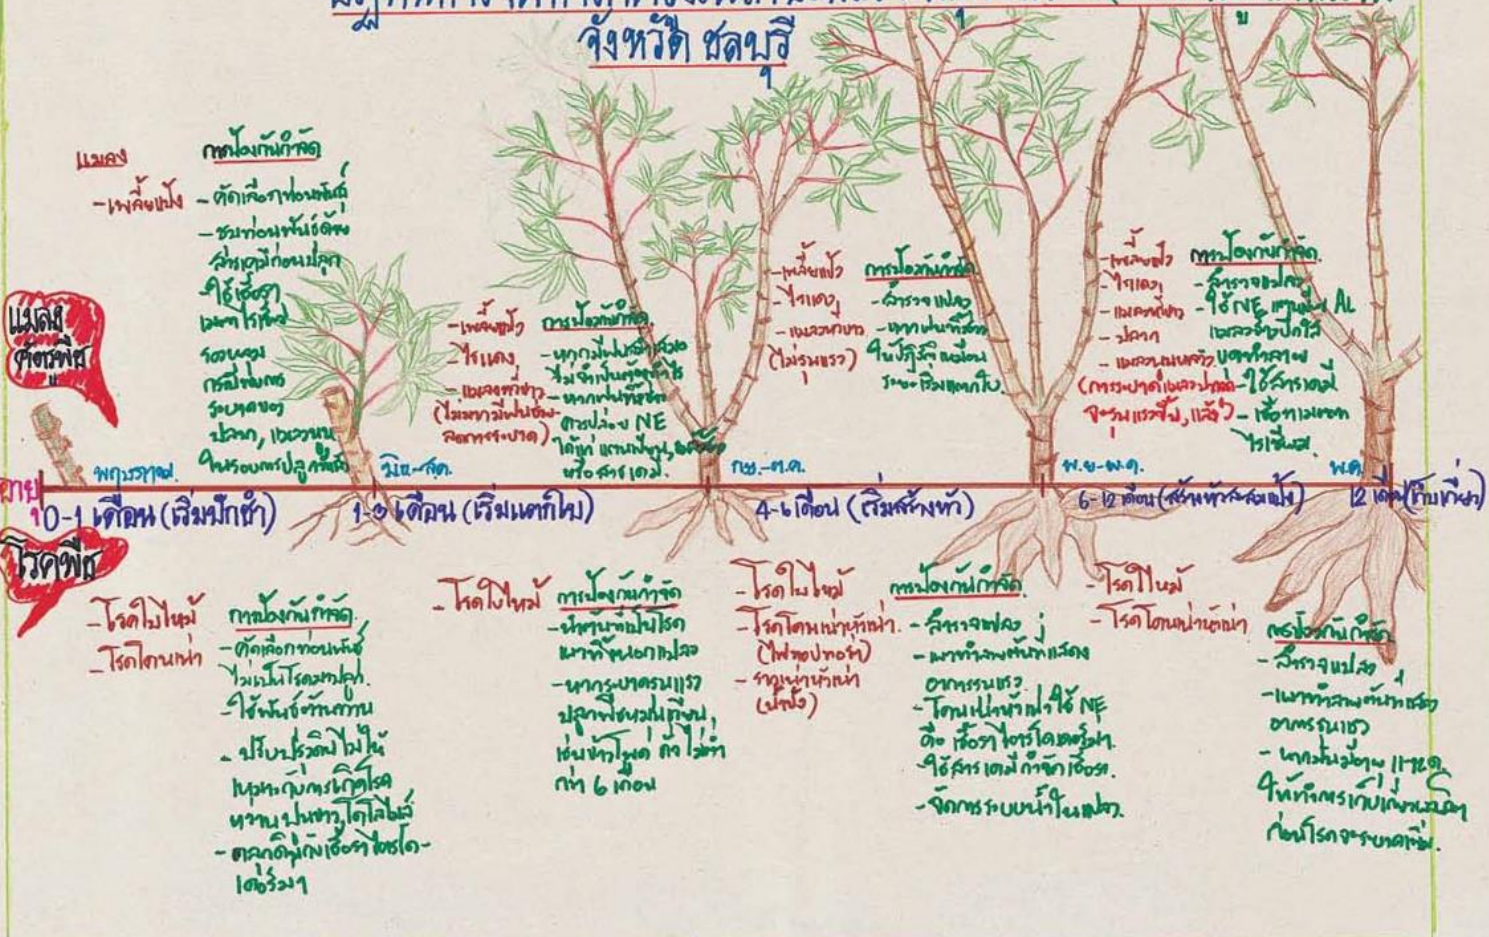 จังหวัด ชลบุรี
แมลง
- เพลี้ยแป้ง
การป้องกันกำจัด
- คัดเลือกท่อนพันธุ์
- ชุบท่อนพันธุ์ด้วย
สารเคมีก่อนปลูก
- ใช้เชื้อรา
เมตาไรเซียม
รองหลุม
กรณีพบการ
ระบาดของ
ปลวก, แมลงนูน
ในรอบการปลูกที่แล้ว
แมลง
ศัตรูพืช
- เพลี้ยแป้ง
- ไรแดง
- แมลงหวี่ขาว
การป้องกันกำจัด
ควรปล่อย NE
หรือสารเคมี
- เพลี้ยแป้ง
- ไรแดง
- แมลงหวี่ขาว
(ไม่รุนแรง)
การป้องกันกำจัด
- สำรวจแปลง
- หากฝนทิ้งช่วง
ให้ปฏิบัติเหมือน
ระยะเริ่มแตกใบ
- เพลี้ยแป้ง
- ไรแดง
- แมลงหวี่ขาว
- ปลวก
- แมลงนูนหลวง
การป้องกันกำจัด
- สำรวจแปลง
- ใช้ NE แตนเบียน AL
แมลงช้างปีกใส
- ใช้สารเคมี
อายุ
พฤษภาคม
มิย.-สค.
กย.-ต.ค.
พ.ย-พ.ค.
พ.ค.
0-1 เดือน (เริ่มปักชำ)
1-3 เดือน (เริ่มแตกใบ)
4-6 เดือน (เริ่มสร้างหัว)
6-12 เดือน (สร้างหัวสะสมแป้ง)
12 เดือน (เก็บเกี่ยว)
โรคพืช
- โรคใบไหม้
- โรคโคนเน่า
การป้องกันกำจัด
- คัดเลือกท่อนพันธุ์
ไม่เป็นโรคมาปลูก
- ใช้พันธุ์ต้านทาน
- ปรับปรุงดินไม่ให้
เหมาะกับการเกิดโรค
หว่านปูนขาว, โดโลไมล์
- คลุกดินกับเชื้อราไตรโค-
เดอร์มา
- โรคใบไหม้
การป้องกันกำจัด
- นำต้นที่เป็นโรค
เผาทิ้งนอกแปลง
- หากระบาดรุนแรง
ปลูกพืชหมุนเวียน
เช่นข้าวโพด ถั่ว ไม่ต่ำ
กว่า 6 เดือน
- โรคใบไหม้
- โรคโคนเน่าหัวเน่า
(ไฟทอปทอร่า)
การป้องกันกำจัด
- สำรวจแปลง
- เผาทำลายต้นที่แสดง
อาการรุนแรง
- โคนเน่าหัวเน่าใช้ NE
คือ เชื้อราไตรโคเดอร์มา
- ใช้สารเคมีกำจัดเชื้อรา
- จัดการระบบน้ำในแปลง
- โรคใบไหม้
- โรคโคนเน่าหัวเน่า
การป้องกันกำจัด
- สำรวจแปลง
- เผาทำลายต้นที่แสดง
อาการรุนแรง
ให้ทำการเก็บเกี่ยวผลผลิต
ก่อนโรคจะระบาดเพิ่ม